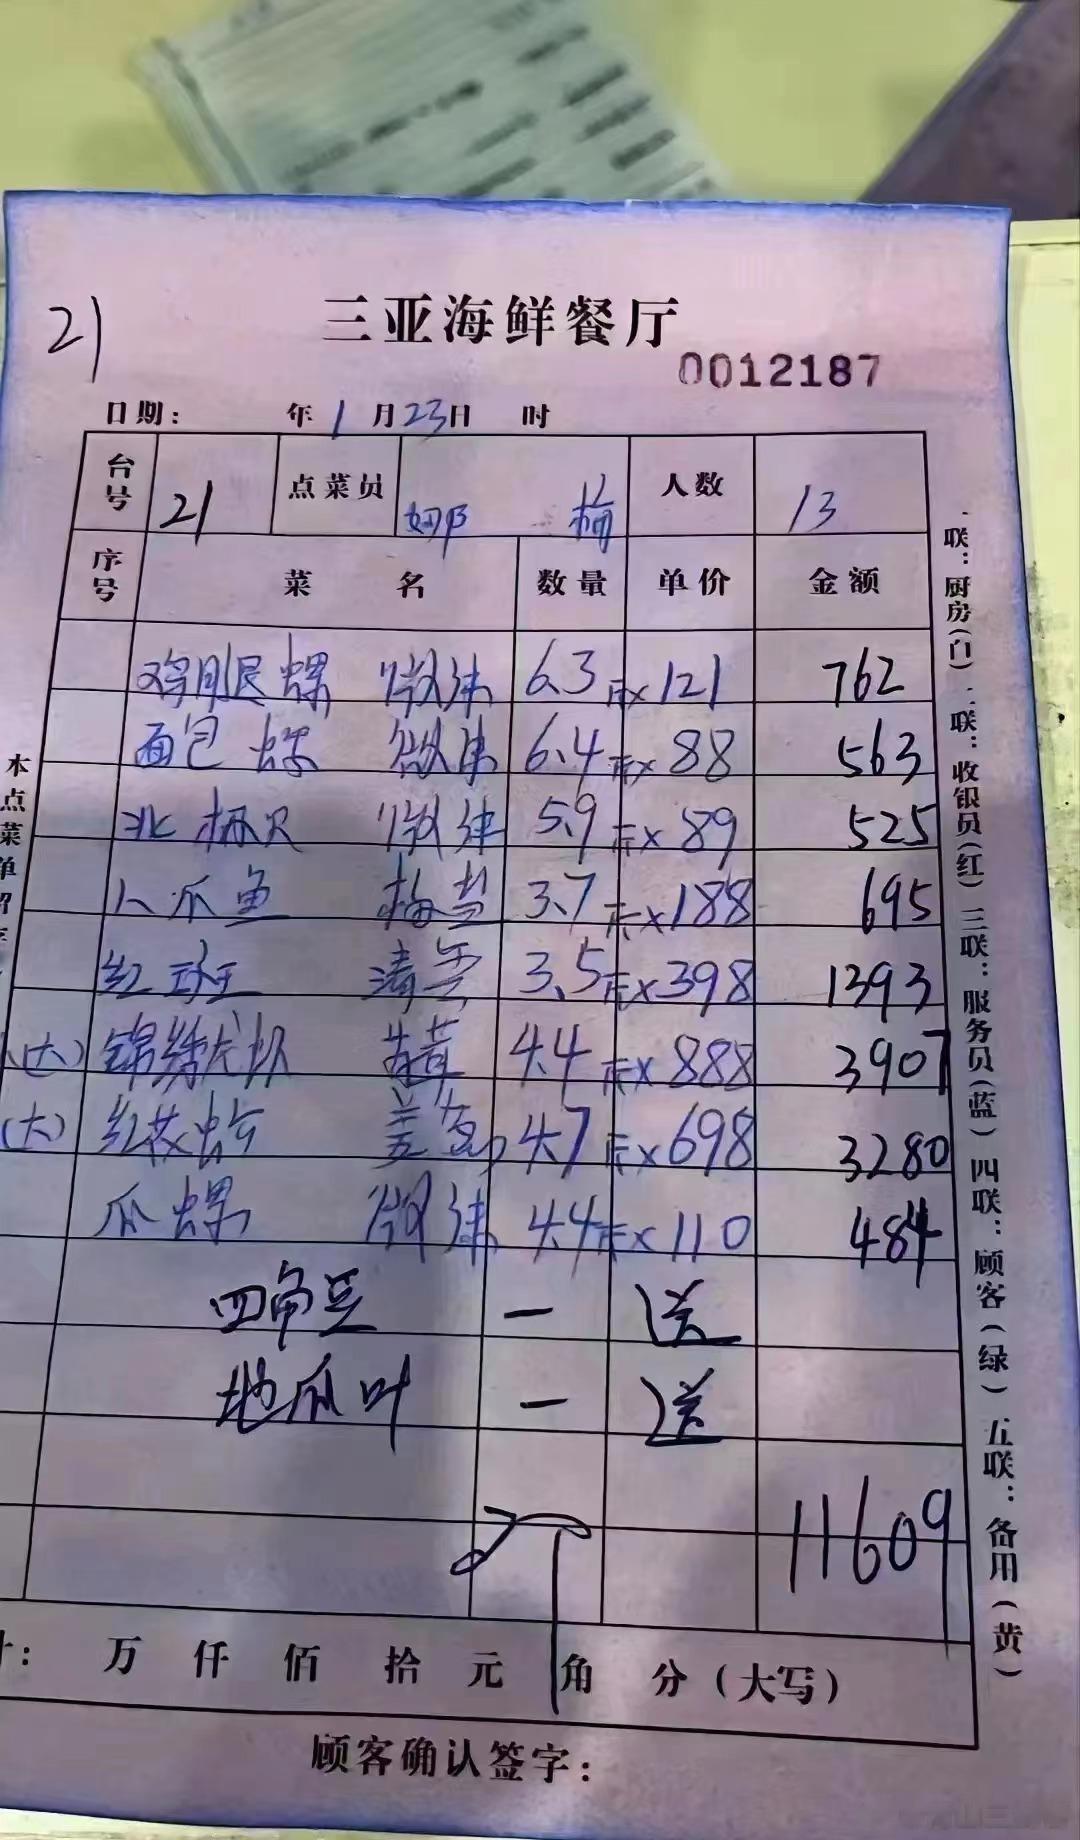 21
三亚海鲜餐厅
0012187
日期: 年1月23日 时
台号 21 点菜员 娜 梅 人数 13
序号 菜名 数量 单价 金额
鸡腿螺 6.3斤×121 762
面包螺 6.4斤×88 563
北极贝 5.9斤×89 525
八爪鱼 3.7斤×188 695
红斑 清蒸 3.5斤×398 1393
(大) 锦绣龙虾 4.4斤×888 3907
(大) 红花蟹 姜葱 4.7斤×698 3280
瓜螺 4.4斤×110 484
四角豆 一 送
地瓜叶 一 送
11609
计: 万 仟 佰 拾 元 角 分(大写)
顾客确认签字:
本点菜单
一联:厨房(白) 二联:收银员(红) 三联:服务员(蓝) 四联:顾客(绿) 五联:备用(黄)